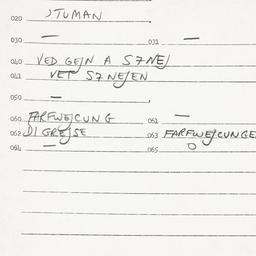 020 STUMAN
030 — 031 —
040 VED GEJN A S7NEJ
041 VET S7NEJEN
050 —
060 FARFWEJCUNG 061 —
062 DI GREJSE 063 FARFWEJCUNGE
064 — 065 O